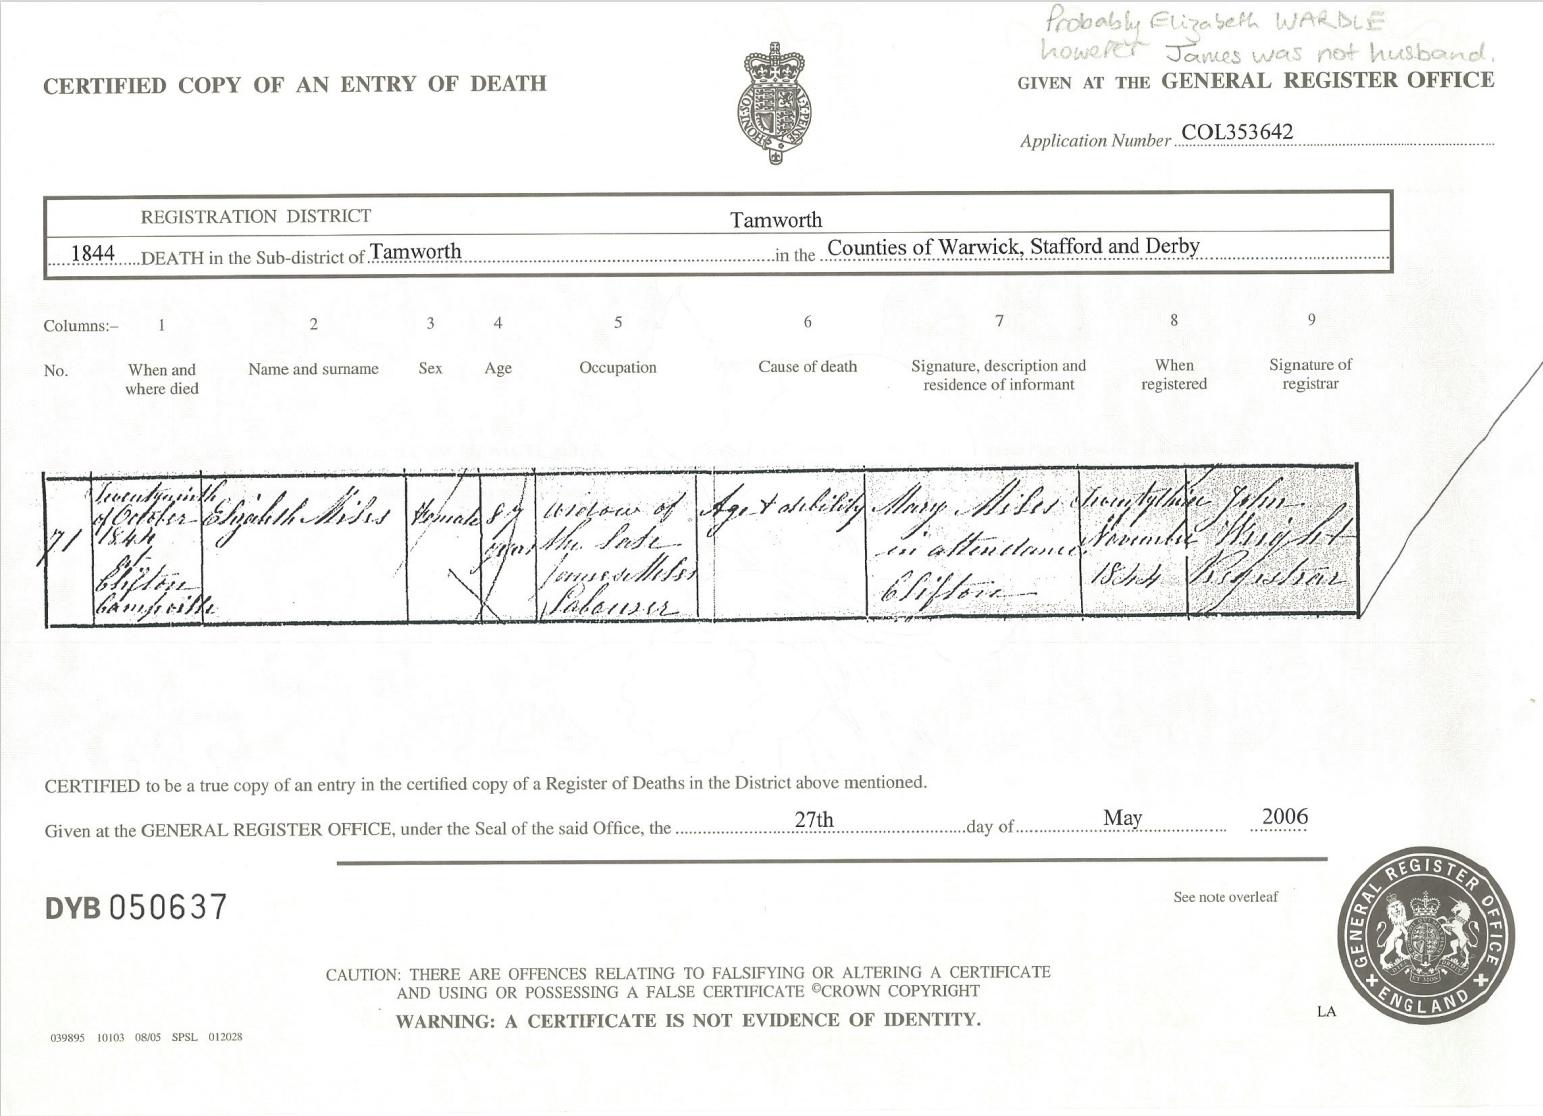 Probably Elizabeth WARDLE
however James was not husband.
CERTIFIED COPY OF AN ENTRY OF DEATH
GIVEN AT THE GENERAL REGISTER OFFICE
Application Number COL353642
REGISTRATION DISTRICT Tamworth
1844 DEATH in the Sub-district of Tamworth in the Counties of Warwick, Stafford and Derby
Columns:– 1 2 3 4 5 6 7 8 9
No. When and where died Name and surname Sex Age Occupation Cause of death Signature, description and residence of informant When registered Signature of registrar
71
Twentyninth
of October
1844
at
Clifton
Campville
Elizabeth Miles
Female
87
years
widow of
the late
James Miles
Labourer
Age & debility
Mary Miles
in attendance
Clifton
November
1844
John
Wright
Registrar
CERTIFIED to be a true copy of an entry in the certified copy of a Register of Deaths in the District above mentioned.
Given at the GENERAL REGISTER OFFICE, under the Seal of the said Office, the 27th day of May 2006
DYB 050637
See note overleaf
GENERAL REGISTER OFFICE
ENGLAND
CAUTION: THERE ARE OFFENCES RELATING TO FALSIFYING OR ALTERING A CERTIFICATE
AND USING OR POSSESSING A FALSE CERTIFICATE ©CROWN COPYRIGHT
WARNING: A CERTIFICATE IS NOT EVIDENCE OF IDENTITY.
LA
039895 10103 08/05 SPSL 012028